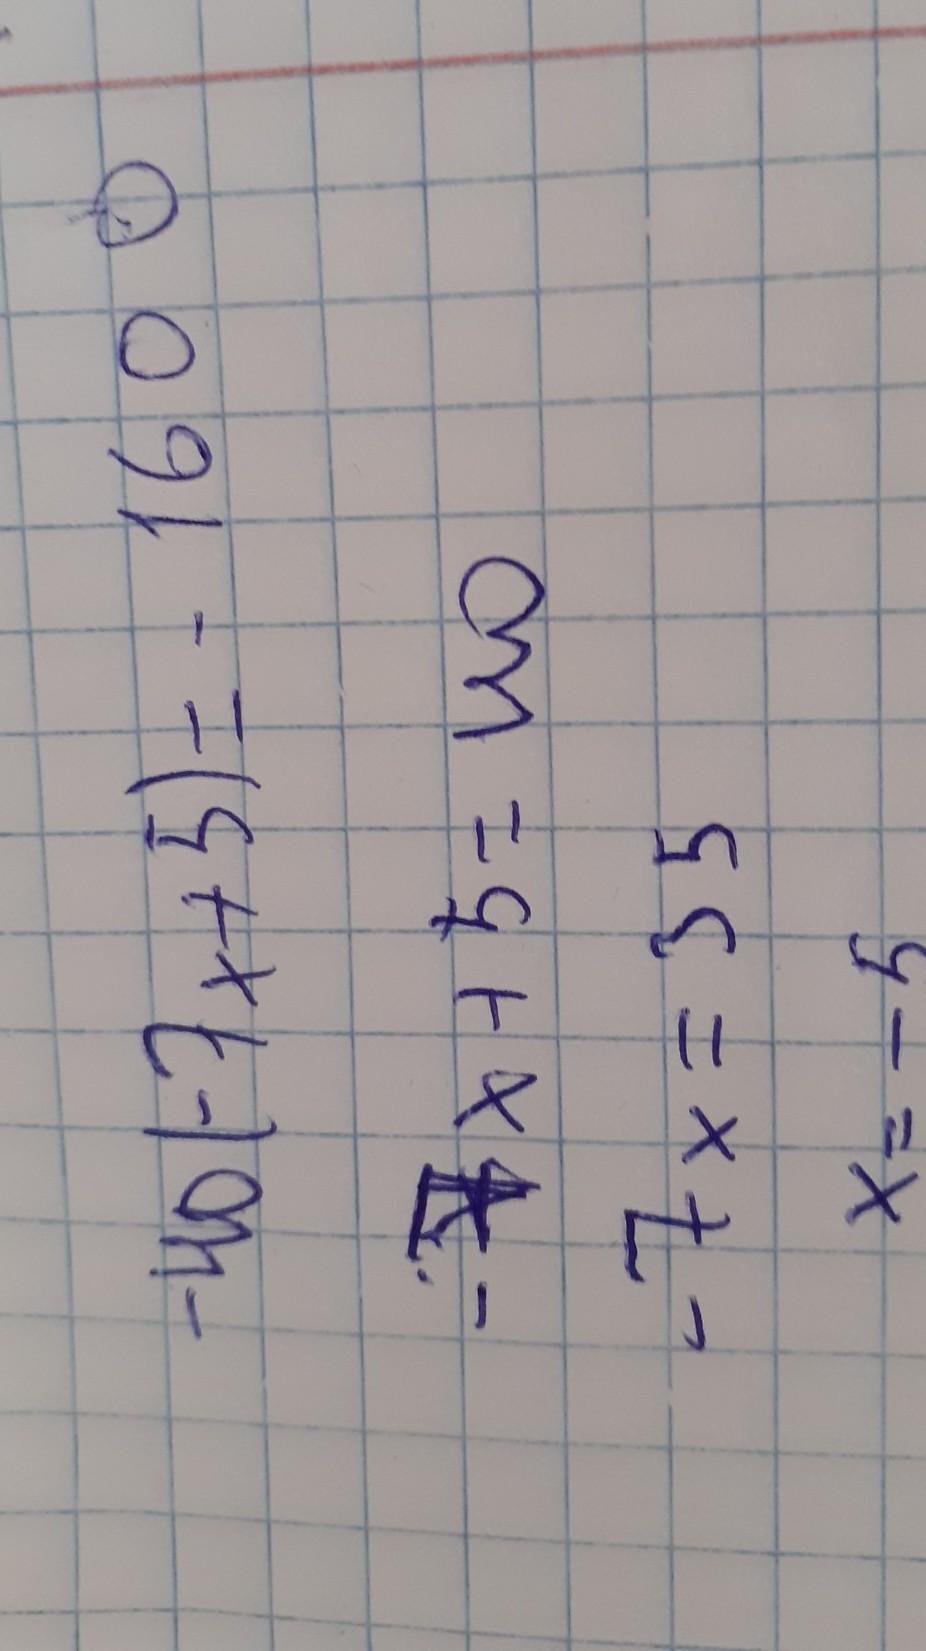 -40(-7x+5)=-1600
-7x+5=40
-7x=35
x=-5